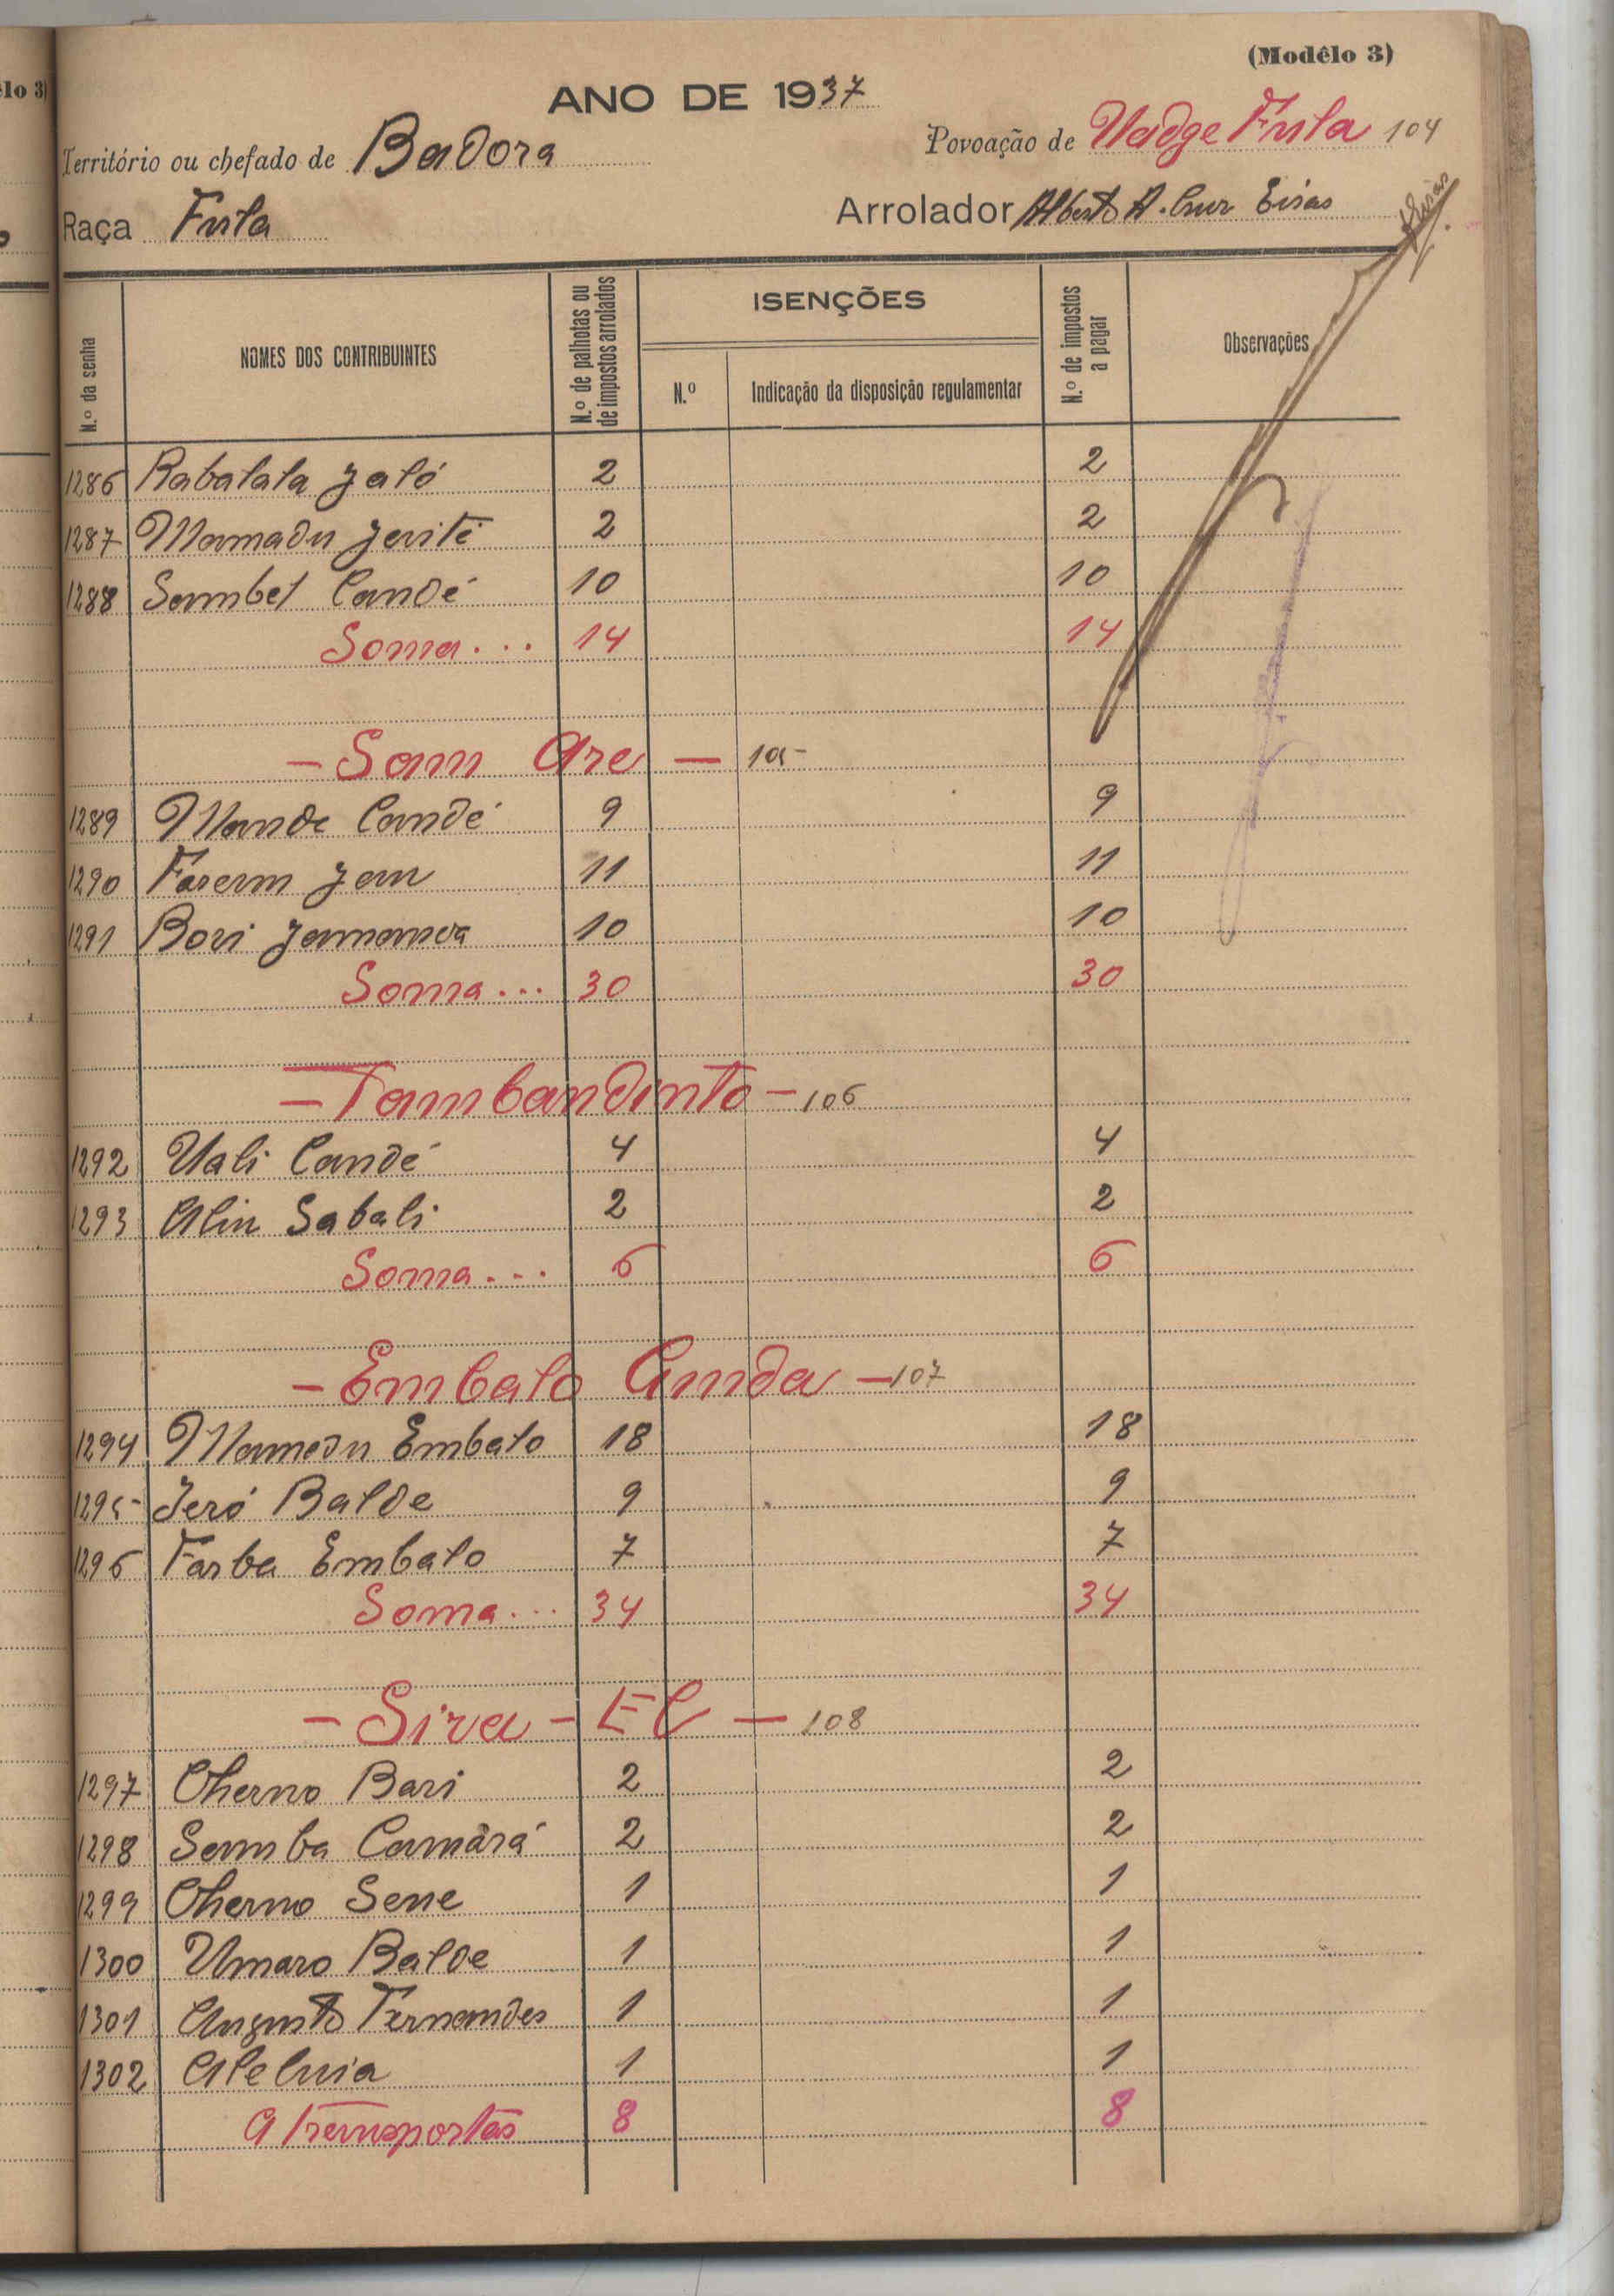 (Modêlo 3)
ANO DE 1937
Território ou chefado de Badora
Povoação de Uadge Fula 104
Raça Fula
Arrolador Alberto A. Cruz Eiras
N.º da senha
NOMES DOS CONTRIBUINTES
N.º de palhotas ou de impostos arrolados
ISENÇÕES
N.º
Indicação da disposição regulamentar
N.º de impostos a pagar
Observações
1286 Babalala Jaló 2 2
1287 Mamadu Jerité 2 2
1288 Sambel Candé 10 10
Soma... 14 14
- Sam Are - 105
1289 Mande Candé 9 9
1290 Farem Jau 11 11
1291 Bori Jamanca 10 10
Soma... 30 30
- Tambandinto - 106
1292 Uali Candé 4 4
1293 Aliu Sabali 2 2
Soma... 6 6
- Embalo Cunda - 107
1294 Mamadu Embalo 18 18
1295 Jeró Balde 9 9
1296 Farba Embalo 7 7
Soma... 34 34
- Sira - El - 108
1297 Cherno Bari 2 2
1298 Samba Camará 2 2
1299 Cherno Sene 1 1
1300 Umaro Balde 1 1
1301 Augusto Fernandes 1 1
1302 Aleluia 1 1
A transportar 8 8